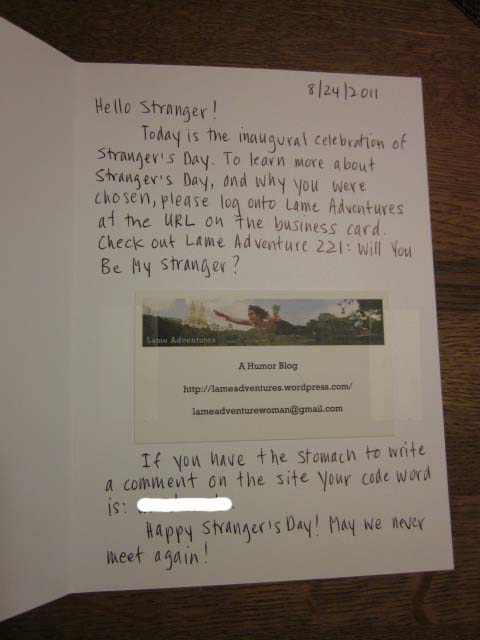 8/24/2011
Hello Stranger!
Today is the inaugural celebration of
Stranger's Day. To learn more about
Stranger's Day, and why you were
chosen, please log onto Lame Adventures
at the URL on the business card.
Check out Lame Adventure 221: Will You
Be My Stranger?
Lame Adventures
A Humor Blog
http://lameadventures.wordpress.com/
lameadventurewoman@gmail.com
If you have the stomach to write
a comment on the site your code word
is:
Happy Stranger's Day! May we never
meet again!